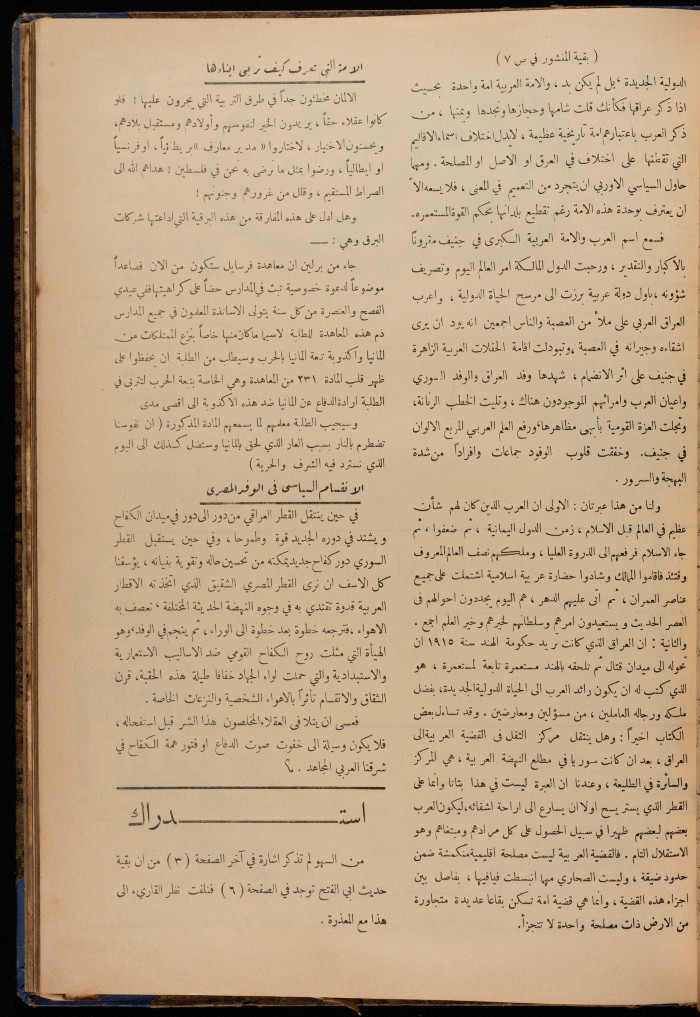 ( بقية المنشور في ص ٧ )
الدولية الجديدة ، بل لم يكن بد ، والامة العربية امة واحدة بحيث
اذا ذكر عراقها فكأنك قلت شامها وحجازها ونجدها ويمنها ، من
ذكر العرب باعتبارهم امة تأريخية عظيمة ، لايدل اختلاف اسماء الاقاليم
التي تقطنها على اختلاف في العرق او الاصل او المصلحة . ومهما
حاول السياسي الاوربي ان يتجرد من التعميم في المعنى ، فلا يسعه الا
ان يعترف بوحدة هذه الامة رغم تقطيع بلدانها بحكم القوة المستعمره.
فسمع اسم العرب والامة العربية الكبرى في جنيف مقروناً
بالاكبار والتقدير ، ورحبت الدول المالكة امر العالم اليوم وتصريف
شؤونه ، باول دولة عربية برزت الى مرسح الحياة الدولية ، واعرب
العراق العربي على ملأ من العصبة والناس اجمعين انه يود ان يرى
اشقاءه وجيرانه في العصبة ، وتبودلت اقامة الحفلات العربية الزاهرة
في جنيف على اثر الانضمام ، شهدها وفد العراق والوفد السوري
واعيان العرب وامرائهم الموجودون هناك ، وتليت الخطب الرنانة،
وتجلت العزة القومية بأبهى مظاهرها ورفع العلم العربي المربع الالوان
في جنيف. وخفقت قلوب الوفود جماعات وافراداً من شدة
البهجة والسرور .
ولنا من هذا عبرتان : الاولى ان العرب الذين كان لهم شأن
عظيم في العالم قبل الاسلام ، زمن الدول اليمانية ، ثم ضعفوا ، ثم
جاء الاسلام فرفعهم الى الذروة العليا ، وملكهم نصف العالم المعروف
وقتئذ فاقاموا الممالك وشادوا حضارة عربية اسلامية اشتملت على جميع
عناصر العمران ، ثم اتى عليهم الدهر ، هم اليوم يجددون احوالهم في
العصر الحديث ويستعيدون امرهم وسلطانهم لخيرهم وخير العلم اجمع .
والثانية : ان العراق الذي كانت يد حكومة الهند سنة ١٩١٥ ان
تحوله الى ميدان قتال ثم تلحقه بالهند مستعمرة تابعة لمستعمرة ، هو
الذي كتب له ان يكون رائد العرب الى الحياة الدولية الجديدة، بفضل
ملكه ورجاله العاملين ، من مسؤلين ومعارضين . وقد تساءل بعض
الكتاب اخيراً : وهل ينتقل مركز الثقل في القضية العربية الى
العراق ، بعد ان كانت سوريا في مطلع النهضة العربية ، هي المركز
والسائرة في الطليعة ، وعندنا ان العبرة ليست في هذا بتاتا وانما على
القطر الذي يستريسح اولا ان يسارع الى اراحة اشقائه، ليكون العرب
بعضهم لبعضهم ظهيرا في سبيل الحصول على كل مرادهم ومبتغاهم وهو
الاستقلال التام . فالقضية العربية ليست مصلحة اقليمية منكمشة ضمن
حدود ضيقة ، وليست الصحاري مهما انبسطت فيافيها ، بفاصل بين
اجزاء هذه القضية ، وانما هي قضية امة تسكن بقاعا عديدة متجاورة
من الارض ذات مصلحة واحدة لا تتجزأ.
الامة التي تعرف كيف تربي ابناءها
الالمان مخطئون جداً في طرق التربية التي يجرون عليها ! فلو
كانوا عقلاء حقاً ، يريدون الخير لنفوسهم وأولادهم ومستقبل بلادهم،
ويحسنون الاختيار ، لاختاروا « مدير معارف » بريطانياً ، او فرنسياً
او ايطالياً ، ورضوا بمثل ما نرضى به نحن في فلسطين ! هداهم الله الى
الصراط المستقيم ، وقلل من غرورهم وجنونهم !
وهل ادل على هذه المفارقة من هذه البرقية التي اذاعتها شركات
البرق وهي : —
جاء من برلين ان معاهدة فرسايل ستكون من الان فصاعداً
موضوعاً لدعوة خصوصية تبث في المدارس حضاً على كراهيتها ففي عيدي
الفصح والعنصرة من كل سنة يتولى الاساتذة المعلمون في جميع المدارس
ذم هذه المعاهدة للطلبة لاسيما ماكان منها خاصاً بنزع الممتلكات من
المانيا واكذوبة تبعة المانيا بالحرب وسيطلب من الطلبة ان يحفظوا على
ظهر قلب المادة ٢٣١ من المعاهدة وهي الخاصة بتبعة الحرب لتتربى في
الطلبة ارادة الدفاع عن المانيا ضد هذه الاكذوبة الى اقصى مدى
وسيجيب الطلبة معلمهم لما يسمعهم المادة المذكورة ( ان نفوسنا
تضطرم بالنار بسبب العار الذي لحق بالمانيا وستضل كذلك الى اليوم
الذي نسترد فيه الشرف والحرية )
الانقسام السياسي في الوفد المصري
في حين ينتقل القطر العراقي من دور الى دور في ميدان الكفاح
ويشتد في دوره الجديد قوة وطموحا ، وفي حين يستقبل القطر
السوري دور كفاح جديد يمكنه من تحسين حاله وتقوية بنيانه ، يؤسفنا
كل الاسف ان نرى القطر المصري الشقيق الذي اتخذته الاقطار
العربية قدوة تقتدي به في وجوه النهضة الحديثة المختلفة ، تعصف به
الاهواء ، فترجعه خطوة بعد خطوة الى الوراء ، ثم ينجم في الوفد ، وهو
الهيأة التي مثلت روح الكفاح القومي ضد الاساليب الاستعمارية
والاستبدادية والتي حملت لواء الجهاد خفاقا طيلة هذه الحقبة، قرن
الشقاق والانقسام تأثراً بالاهواء الشخصية والنزعات الخاصة .
فعسى ان يتلافى العقلاء المخلصون هذا الشر قبل استفحاله ،
فلا يكون وسيلة الى خفوت صوت الدفاع او فتور همة الكفاح في
شرقنا العربي المجاهد .
استــــدراك
من السهو لم تذكر اشارة في آخر الصفحة ( ٣ ) من ان بقية
حديث ابي الفتح توجد في الصفحة ( ٦ ) فنلفت نظر القاريء الى
هذا مع المعذرة .